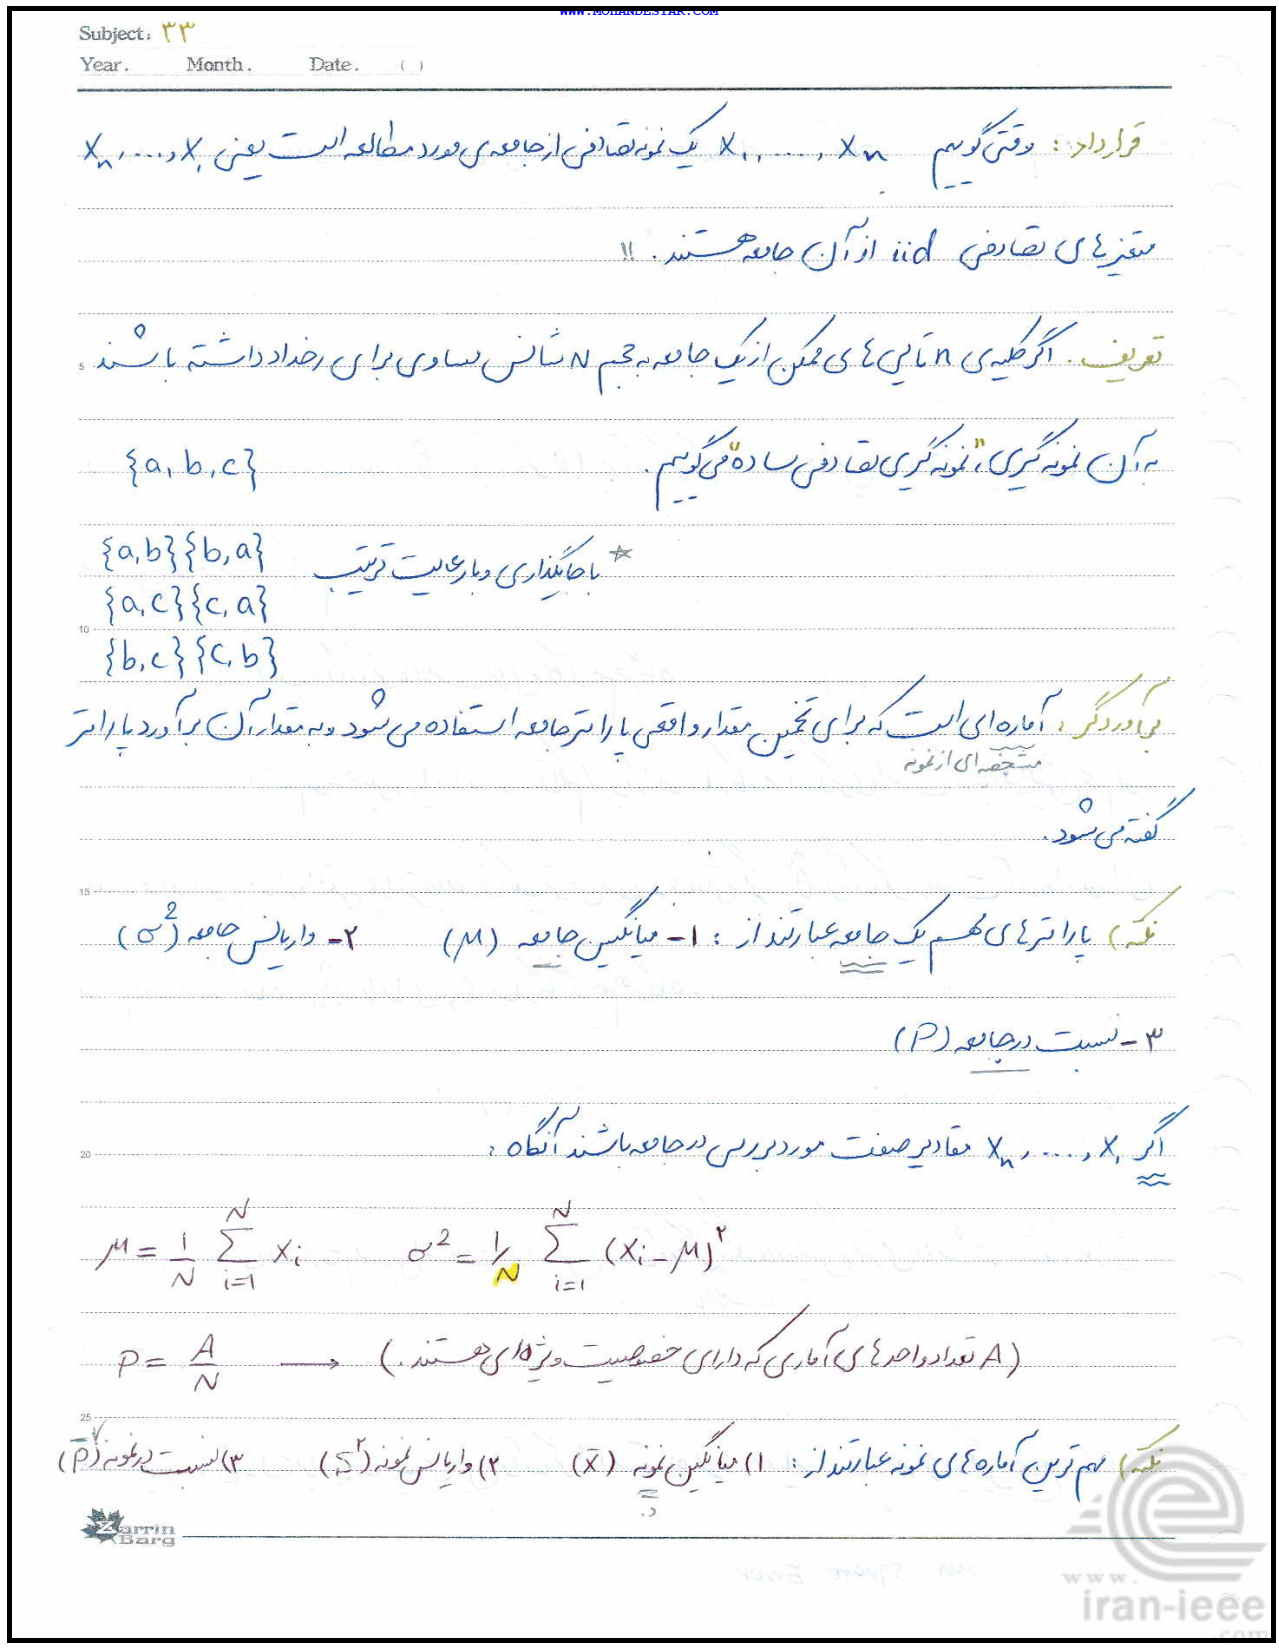 WWW.MOHANDESYAR.COM
Subject: ۳۳
Year. Month. Date. ( )
قرارداد: وقتی گوییم X₁, ...., Xn یک نمونه تصادفی از جامعه‌ی مورد مطالعه است یعنی X₁, ...., Xn
متغیرهای تصادفی iid از آن جامعه هستند. !!
تعریف. اگر کلیه‌ی n تایی‌های ممکن از یک جامعه به حجم N شانس مساوی برای رخداد داشته باشند
به آن نمونه گیری، "نمونه گیری تصادفی ساده" می‌گوییم. {a, b, c}
* با جایگذاری و با رعایت ترتیب {a,b} {b,a}
{a,c} {c,a}
{b,c} {c,b}
برآوردگر: آماره‌ای است که برای تخمین مقدار واقعی پارامتر جامعه استفاده می‌شود و به مقدار آن برآورد پارامتر
مشخصه‌ای از نمونه
گفته می‌شود.
نکته) پارامترهای مهم یک جامعه عبارتند از: ۱- میانگین جامعه (μ) ۲- واریانس جامعه (σ²)
۳- نسبت در جامعه (P)
اگر X₁, ...., Xn مقادیر صفت مورد بررسی در جامعه باشند آنگاه:
μ = 1/N Σ_{i=1}^{N} Xi σ² = 1/N Σ_{i=1}^{N} (Xi - μ)²
P = A/N → (A تعداد واحدهای آماری که دارای خصوصیت ویژه‌ای هستند.)
نکته) مهم ترین آماره‌های نمونه عبارتند از: ۱) میانگین نمونه (x̄) ۲) واریانس نمونه (S²) ۳) نسبت در نمونه (p̄)
Zarrin Barg
www.
iran-ieee
.com